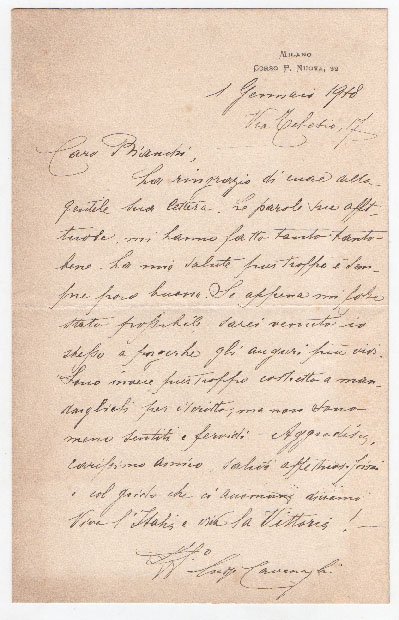 MILANO
CORSO P. NUOVA, 22
1 Gennaio 1918
Via Telesio, 17
Caro Bianchi,
La ringrazio di cuore della
gentile Sua lettera. Le parole sue affet-
tuose, mi hanno fatto tanto tanto
bene. La mia salute purtroppo è sem-
pre poco buona. Se appena mi fosse
stato possibile sarei venuto io
stesso a porgerle gli auguri più vivi.
Sono invece purtroppo costretto a man-
darglieli per iscritto, ma non sono
meno sentiti e fervidi. Aggradisca,
carissimo amico, saluti affettuosissimi
e col grido che ci accomuna diciamo
Viva l'Italia e viva la Vittoria!
Aff.o